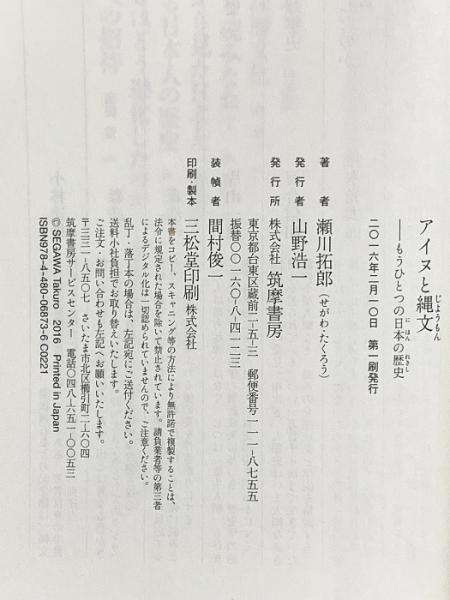 アイヌと縄文
じょうもん
——もうひとつの日本の歴史
にほん れきし
二〇一六年二月一〇日 第一刷発行
著者 瀬川拓郎（せがわ・たくろう）
発行者 山野浩一
発行所 株式会社 筑摩書房
東京都台東区蔵前二-五-三 郵便番号一一一-八七五五
振替〇〇一六〇-八-四一二三
装幀者 間村俊一
印刷・製本 三松堂印刷 株式会社
本書をコピー、スキャニング等の方法により無許諾で複製することは、
法令に規定された場合を除いて禁止されています。請負業者等の第三者
によるデジタル化は一切認められていませんので、ご注意ください。
乱丁・落丁本の場合は、左記宛にご送付ください。
送料小社負担でお取り替えいたします。
ご注文・お問い合わせも左記へお願いいたします。
〒三三一-八五〇七 さいたま市北区櫛引町二-六〇四
筑摩書房サービスセンター 電話〇四八-六五一-〇〇五三
© SEGAWA Takuro 2016 Printed in Japan
ISBN978-4-480-06873-6 C0221